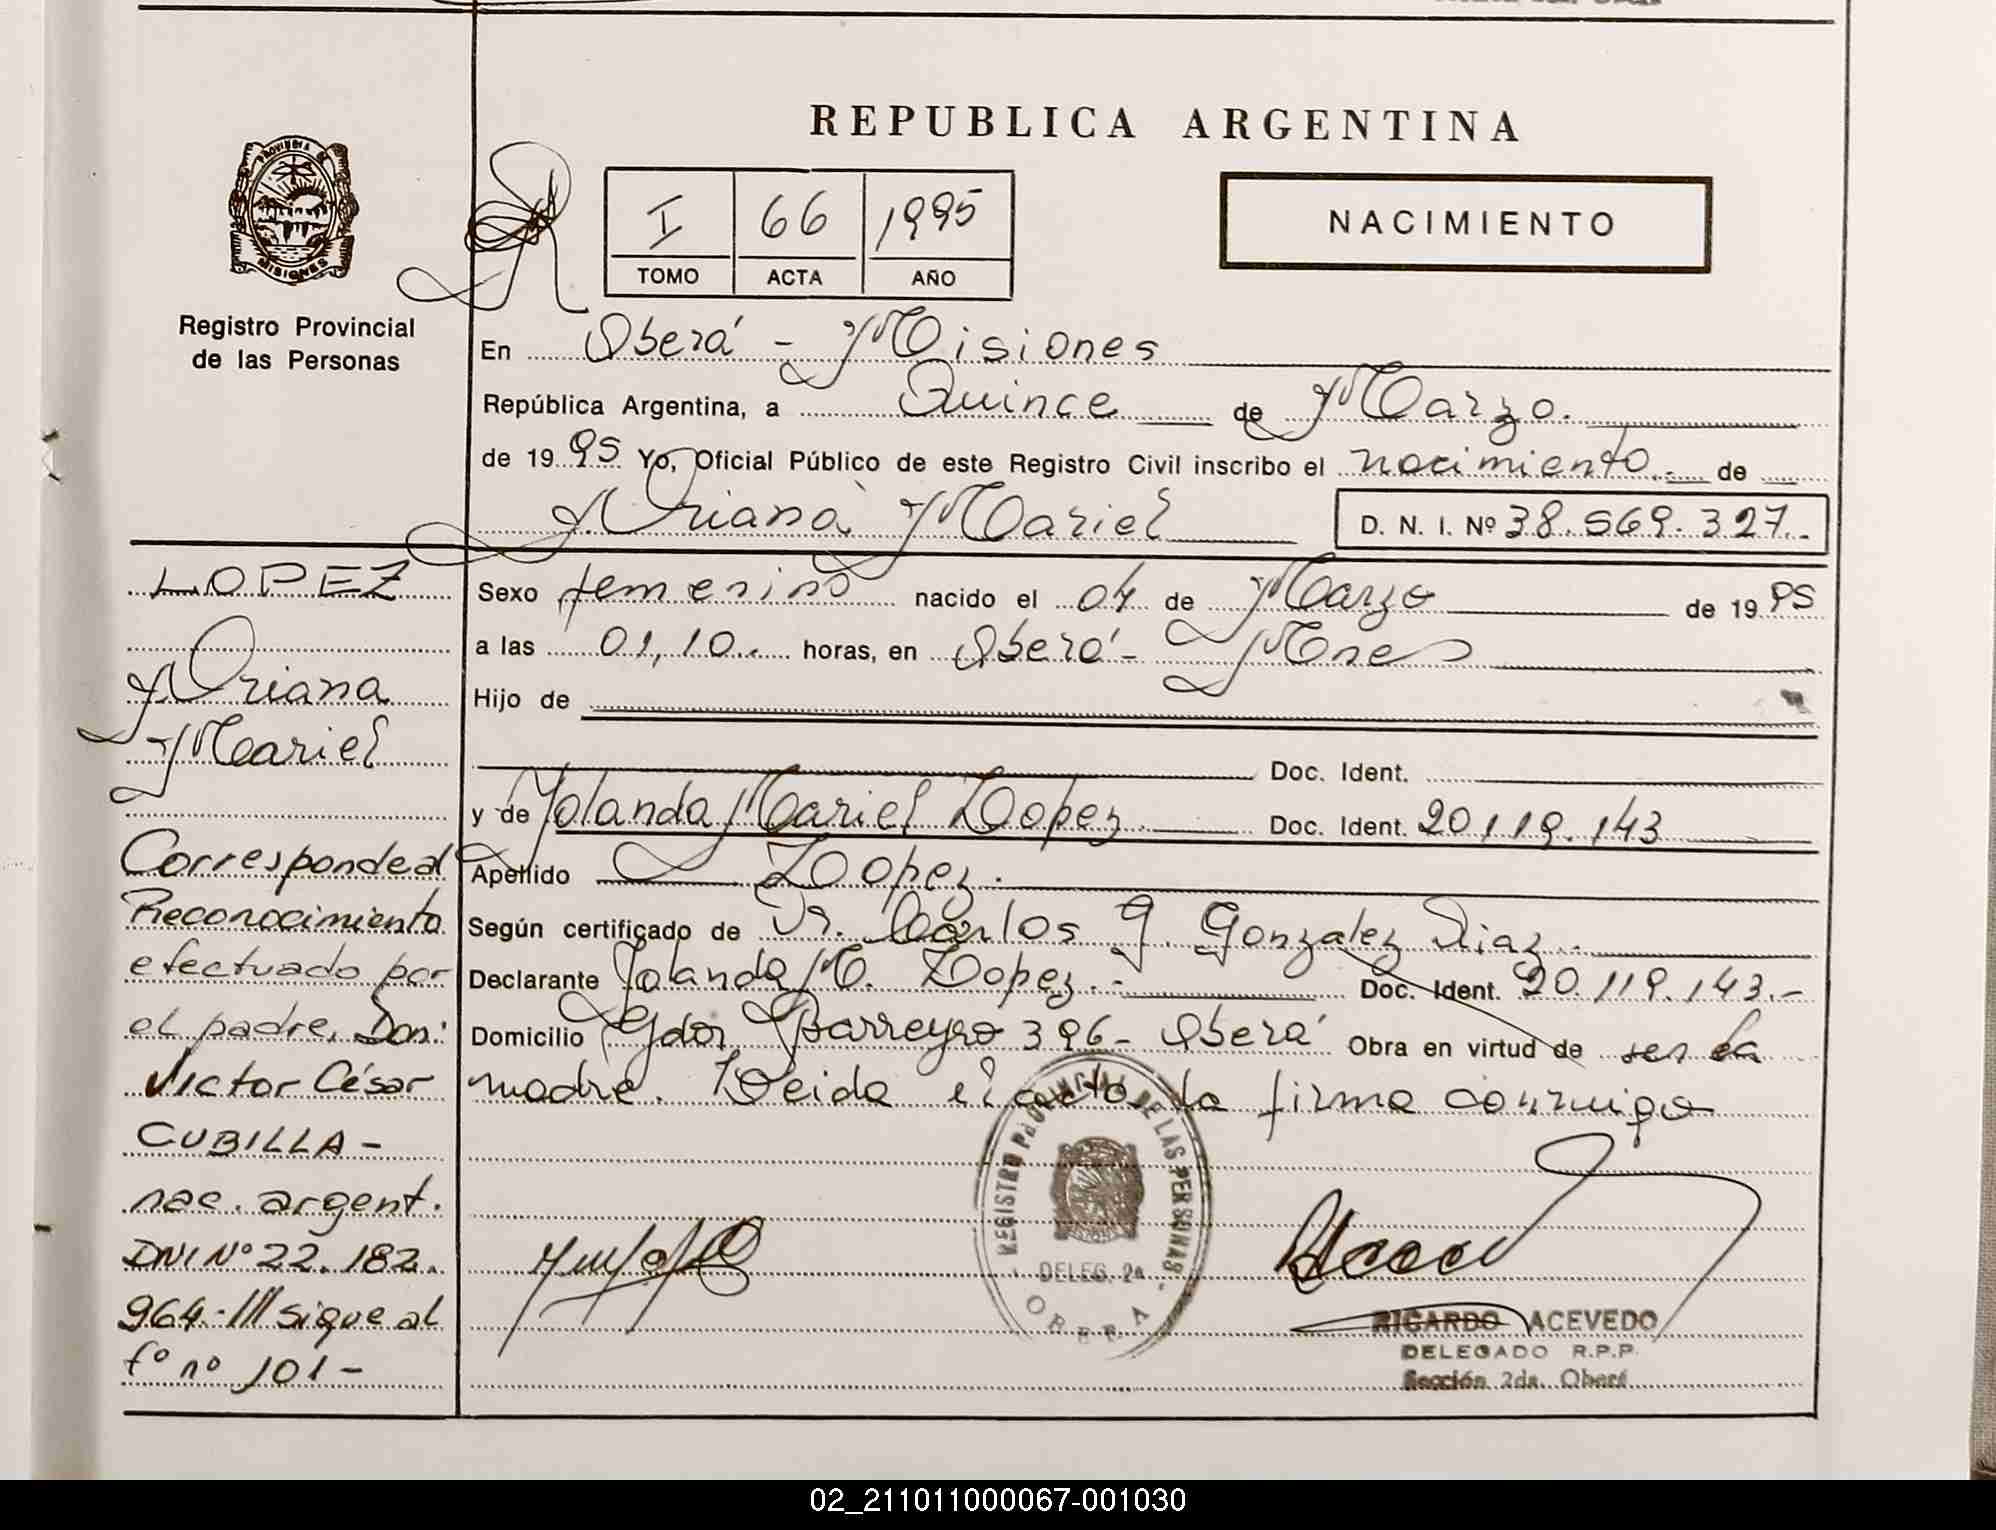 REPUBLICA ARGENTINA
PROVINCIA DE
MISIONES
Registro Provincial
de las Personas
I 66 1995
TOMO ACTA AÑO
NACIMIENTO
En Oberá - Misiones
República Argentina, a Quince de Marzo.
de 1995 Yo, Oficial Público de este Registro Civil inscribo el nacimiento.- de
Ariana Mariel D. N. I. Nº 38.569.327.-
Sexo femenino nacido el 04 de Marzo de 1995
a las 01,10.- horas, en Oberá - Mnes
Hijo de
Doc. Ident.
y de Yolanda Mariel Lopez Doc. Ident. 20.119.143
Apellido Lopez.
Según certificado de Dr. Carlos G. Gonzalez Diaz.-
Declarante Yolanda M. Lopez.- Doc. Ident. 20.119.143.-
Domicilio Gdor Barreyro 396 - Oberá Obra en virtud de ser la
madre. Leida el acta la firma conmigo
LOPEZ
Ariana
Mariel
Corresponde al
Reconocimiento
efectuado por
el padre, Don:
Victor César
CUBILLA -
nac. argent.
DNI Nº 22.182.
964.-/// sigue al
fº nº 101 -
REGISTRO PROVINCIAL DE LAS PERSONAS
DELEG. 2a
OBERA
RICARDO ACEVEDO
DELEGADO R.P.P.
Sección 2da. Oberá
02_211011000067-001030